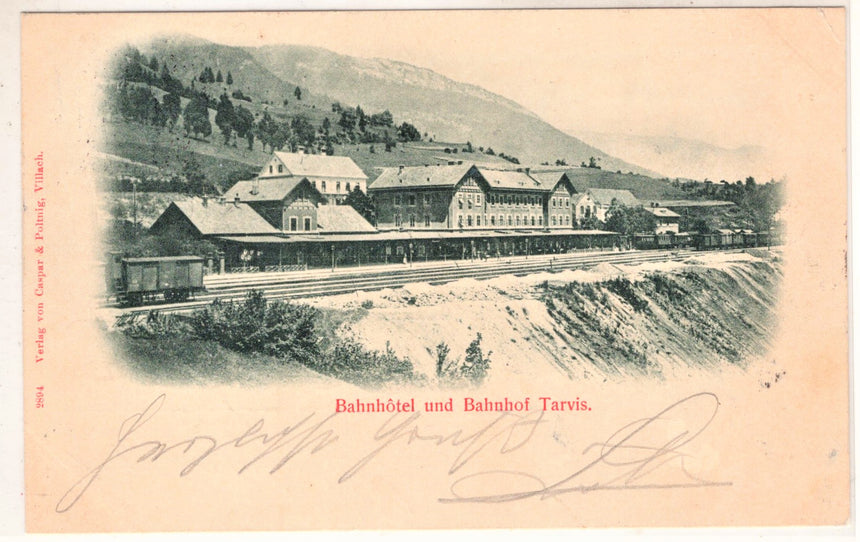 Verlag von Caspar & Poltnig, Villach.
2894
Bahnhôtel und Bahnhof Tarvis.
Herzlichsten Gruß